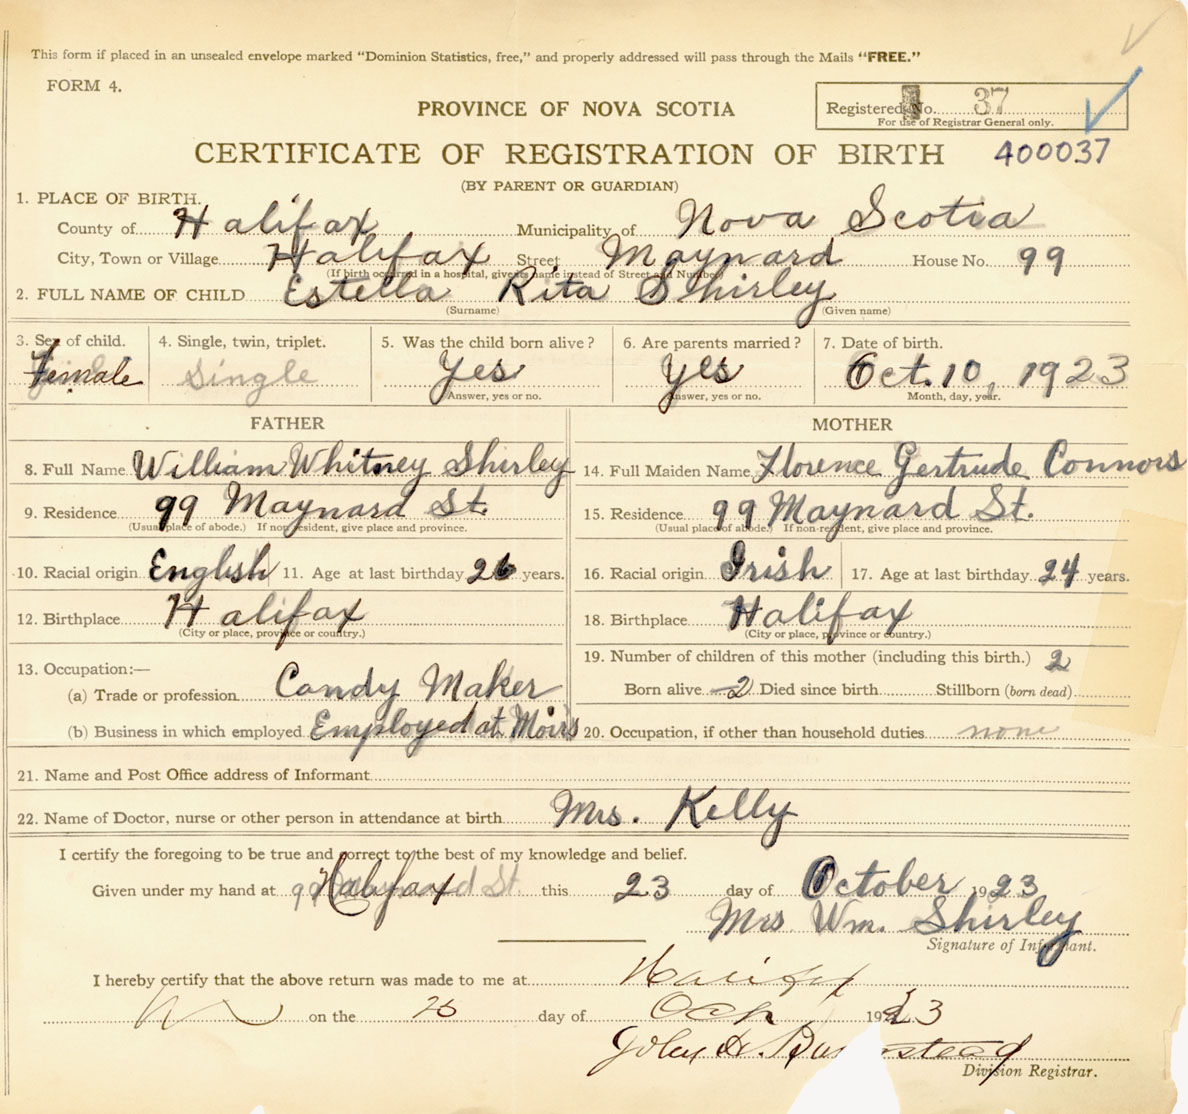 This form if placed in an unsealed envelope marked “Dominion Statistics, free,” and properly addressed will pass through the Mails “FREE.”
FORM 4.
Registered No. 37
PROVINCE OF NOVA SCOTIA
For use of Registrar General only.
CERTIFICATE OF REGISTRATION OF BIRTH 400037
(BY PARENT OR GUARDIAN)
1. PLACE OF BIRTH.
County of Halifax Municipality of Nova Scotia
City, Town or Village Halifax Street Maynard House No. 99
(If birth occurred in a hospital, give its name instead of Street and Number)
2. FULL NAME OF CHILD Estella Rita Shirley
(Surname) (Given name)
3. Sex of child. 4. Single, twin, triplet. 5. Was the child born alive? 6. Are parents married? 7. Date of birth.
Female Single Yes Yes Oct. 10, 1923
Answer, yes or no. Answer, yes or no. Month, day, year.
FATHER MOTHER
8. Full Name William Whitney Shirley 14. Full Maiden Name Florence Gertrude Connors
9. Residence 99 Maynard St. 15. Residence 99 Maynard St.
(Usual place of abode.) If non resident, give place and province. (Usual place of abode.) If non-resident, give place and province.
10. Racial origin English 11. Age at last birthday 26 years. 16. Racial origin Irish 17. Age at last birthday 24 years.
12. Birthplace Halifax 18. Birthplace Halifax
(City or place, province or country.) (City or place, province or country.)
13. Occupation:— 19. Number of children of this mother (including this birth.) 2
(a) Trade or profession Candy Maker Born alive 2 Died since birth Stillborn (born dead)
(b) Business in which employed Employed at Moirs 20. Occupation, if other than household duties none
21. Name and Post Office address of Informant
22. Name of Doctor, nurse or other person in attendance at birth Mrs. Kelly
I certify the foregoing to be true and correct to the best of my knowledge and belief.
Given under my hand at Halifax St. this 23 day of October 1923
Mrs Wm. Shirley
Signature of Informant.
I hereby certify that the above return was made to me at Halifax
on the day of Oct 1923
John H.
Division Registrar.